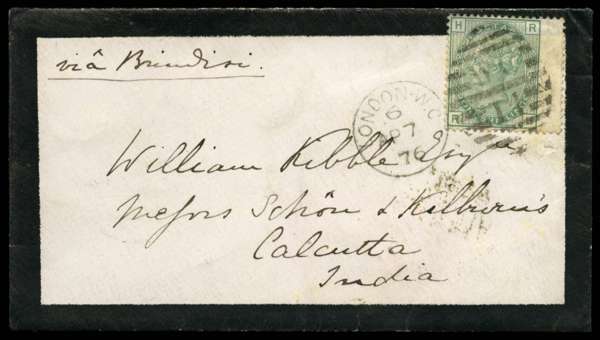 viâ Brindisi.
H R
R
LONDON·W.C
6
AP 7
76
William Kibble Esqre
Messrs Schön & Kilburn's
Calcutta
India